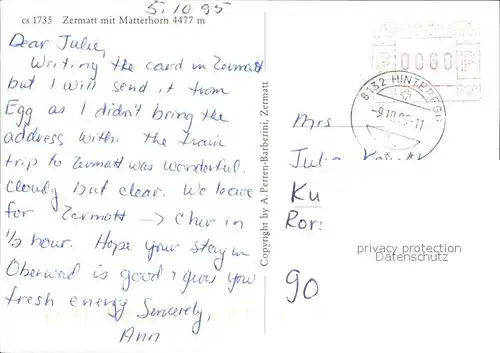 5.10.95
cs 1735 Zermatt mit Matterhorn 4477 m
Dear Julie,
Writing the card in Zermatt
but I will send it from
Egg as I didn't bring the
address with. The train
trip to Zermatt was wonderful.
Cloudy but clear. We leave
for Zermatt -> Chur in
1/2 hour. Hope your stay in
Oberwald is good & gives you
fresh energy Sincerely,
Ann
Copyright by A. Perren-Barberini, Zermatt
0060
8132 HINTEREGG
-9.10.95-11
Mrs
Julia
Ku
Ror
90
privacy protection
Datenschutz